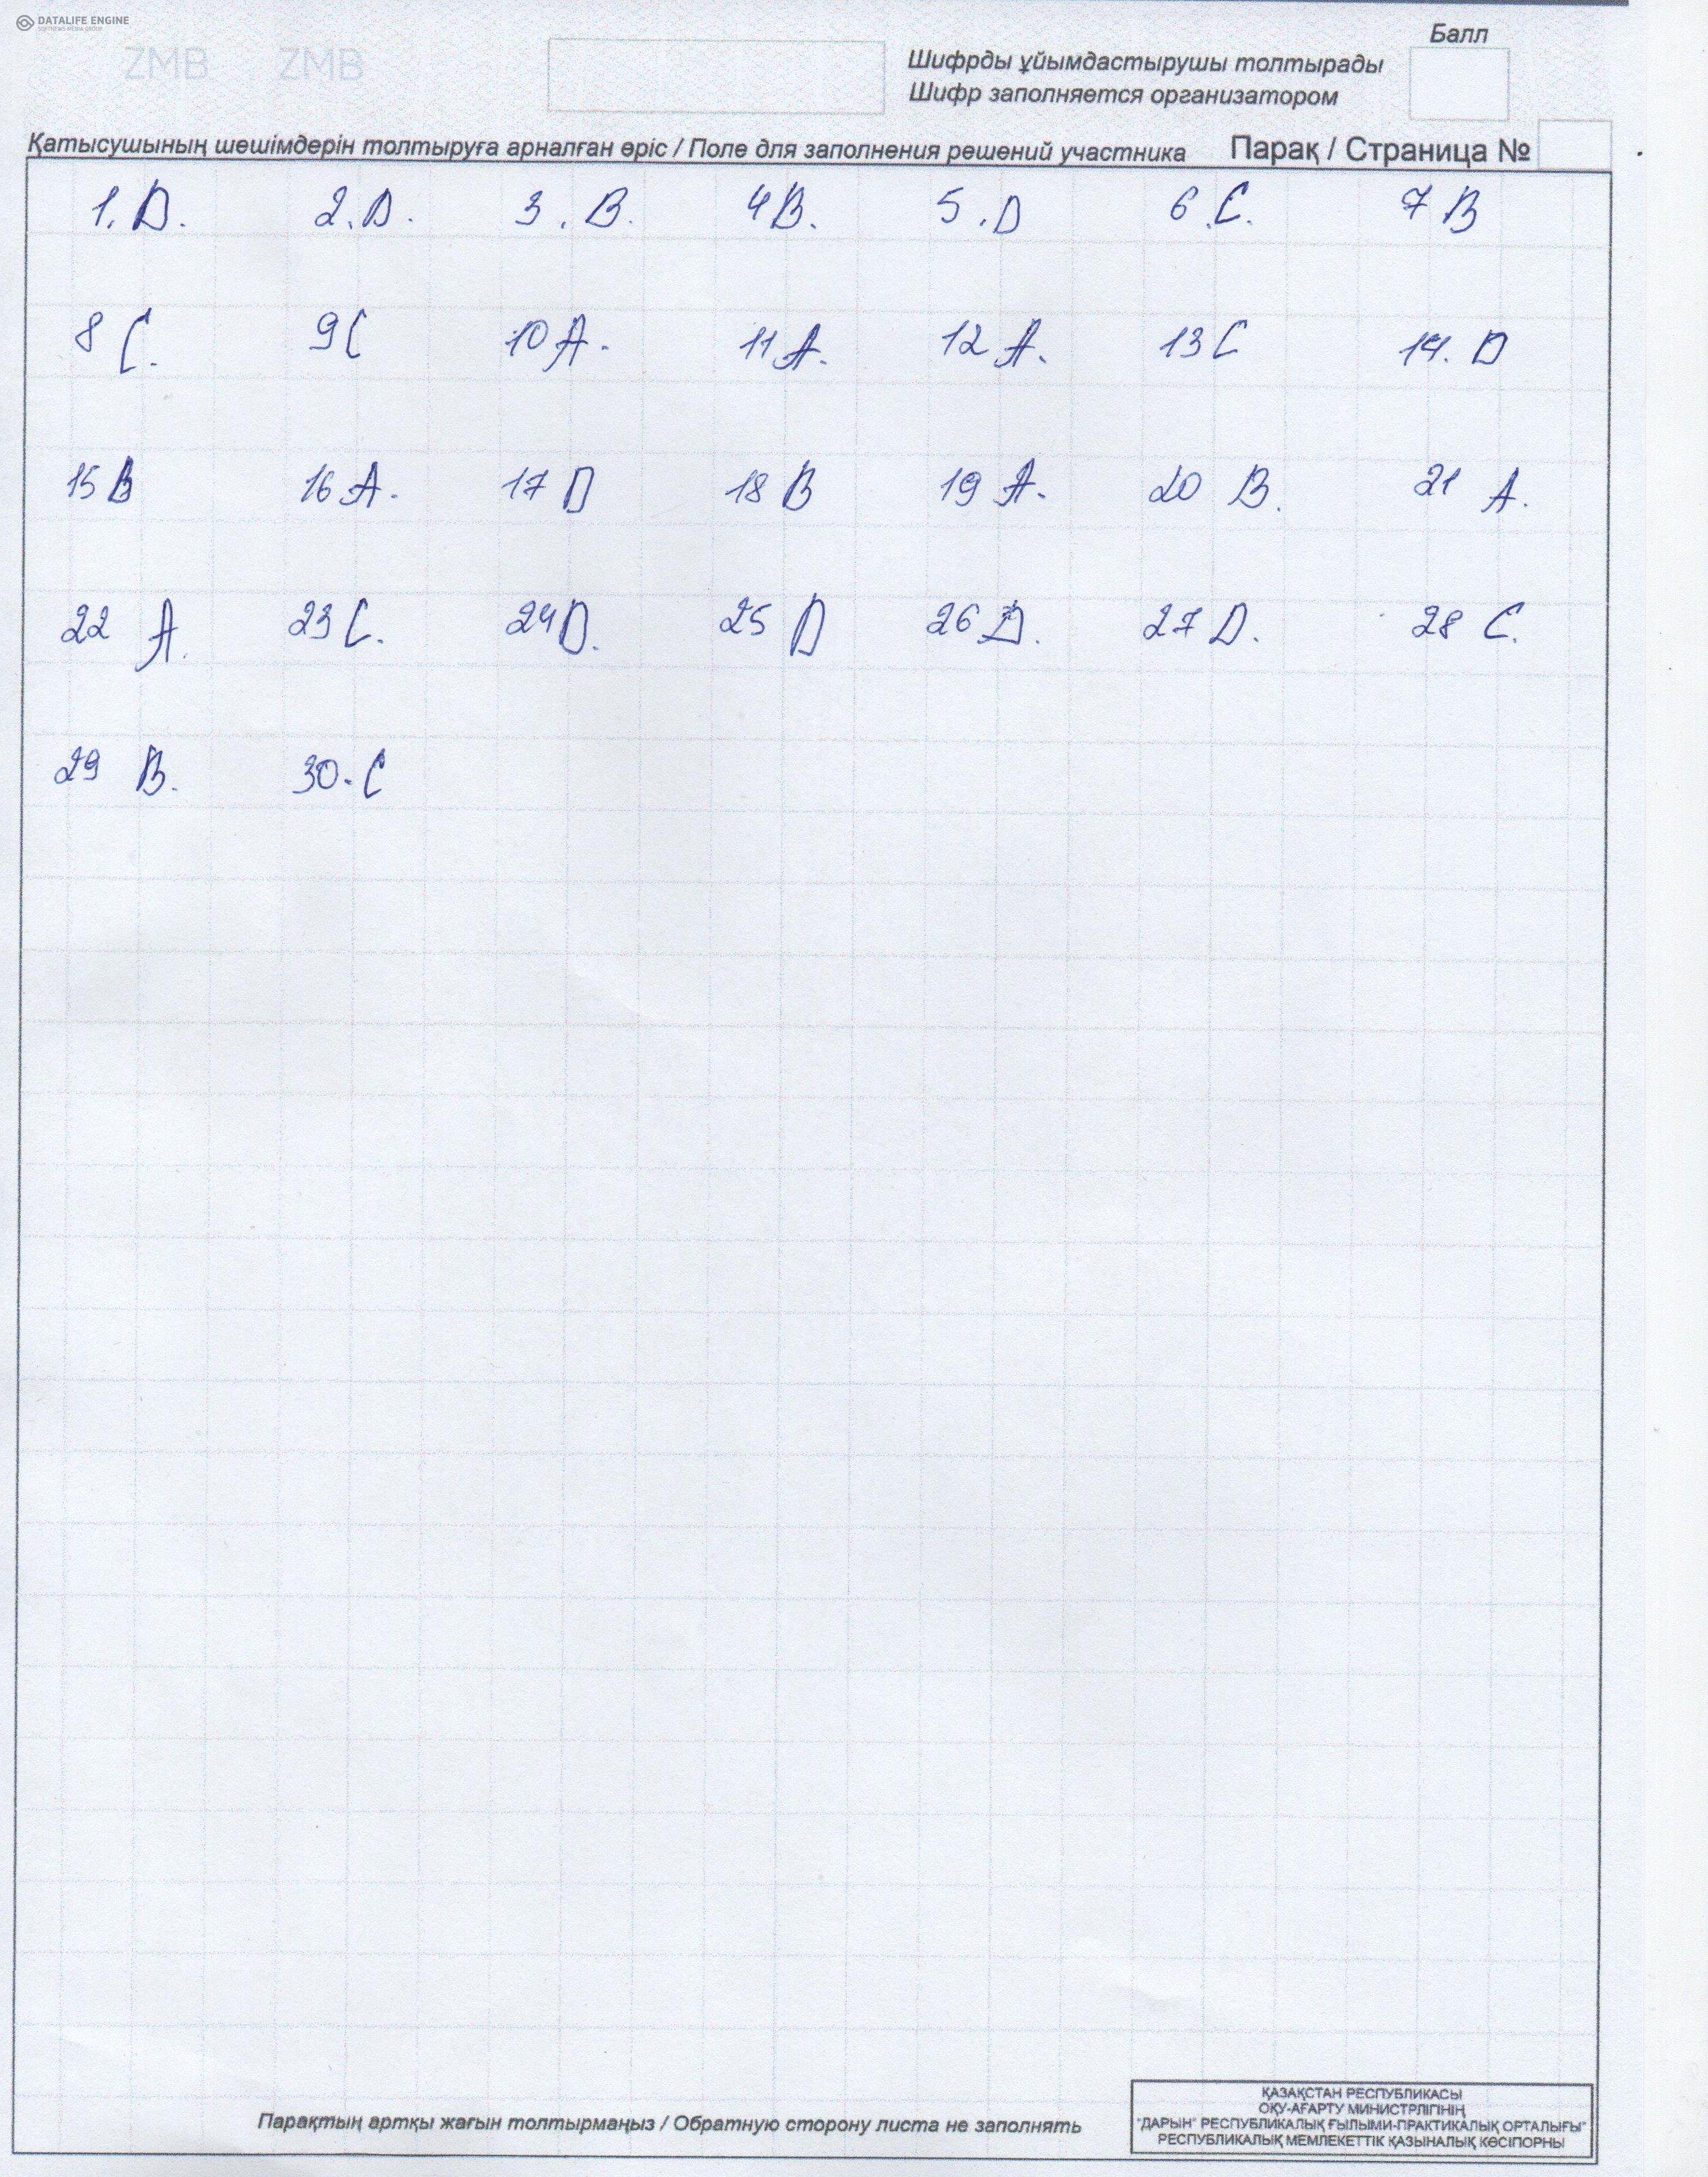 DATALIFE ENGINE
SOFTNEWS MEDIA GROUP
ZMB ZMB
Балл
Шифрды ұйымдастырушы толтырады
Шифр заполняется организатором
Қатысушының шешімдерін толтыруға арналған өріс / Поле для заполнения решений участника Парақ / Страница №
1. D. 2. D. 3. B. 4 B. 5. D 6. C. 7 B
8 C. 9 C 10 A. 11 A. 12 A. 13 C 14. D
15 B 16 A. 17 D 18 B 19 A. 20 B. 21 A.
22 A. 23 C. 24 D. 25 D 26 D. 27 D. 28 C.
29 B. 30. C
Парақтың артқы жағын толтырмаңыз / Обратную сторону листа не заполнять
ҚАЗАҚСТАН РЕСПУБЛИКАСЫ
ОҚУ-АҒАРТУ МИНИСТРЛІГІНІҢ
"ДАРЫН" РЕСПУБЛИКАЛЫҚ ҒЫЛЫМИ-ПРАКТИКАЛЫҚ ОРТАЛЫҒЫ"
РЕСПУБЛИКАЛЫҚ МЕМЛЕКЕТТІК ҚАЗЫНАЛЫҚ КӘСІПОРНЫ